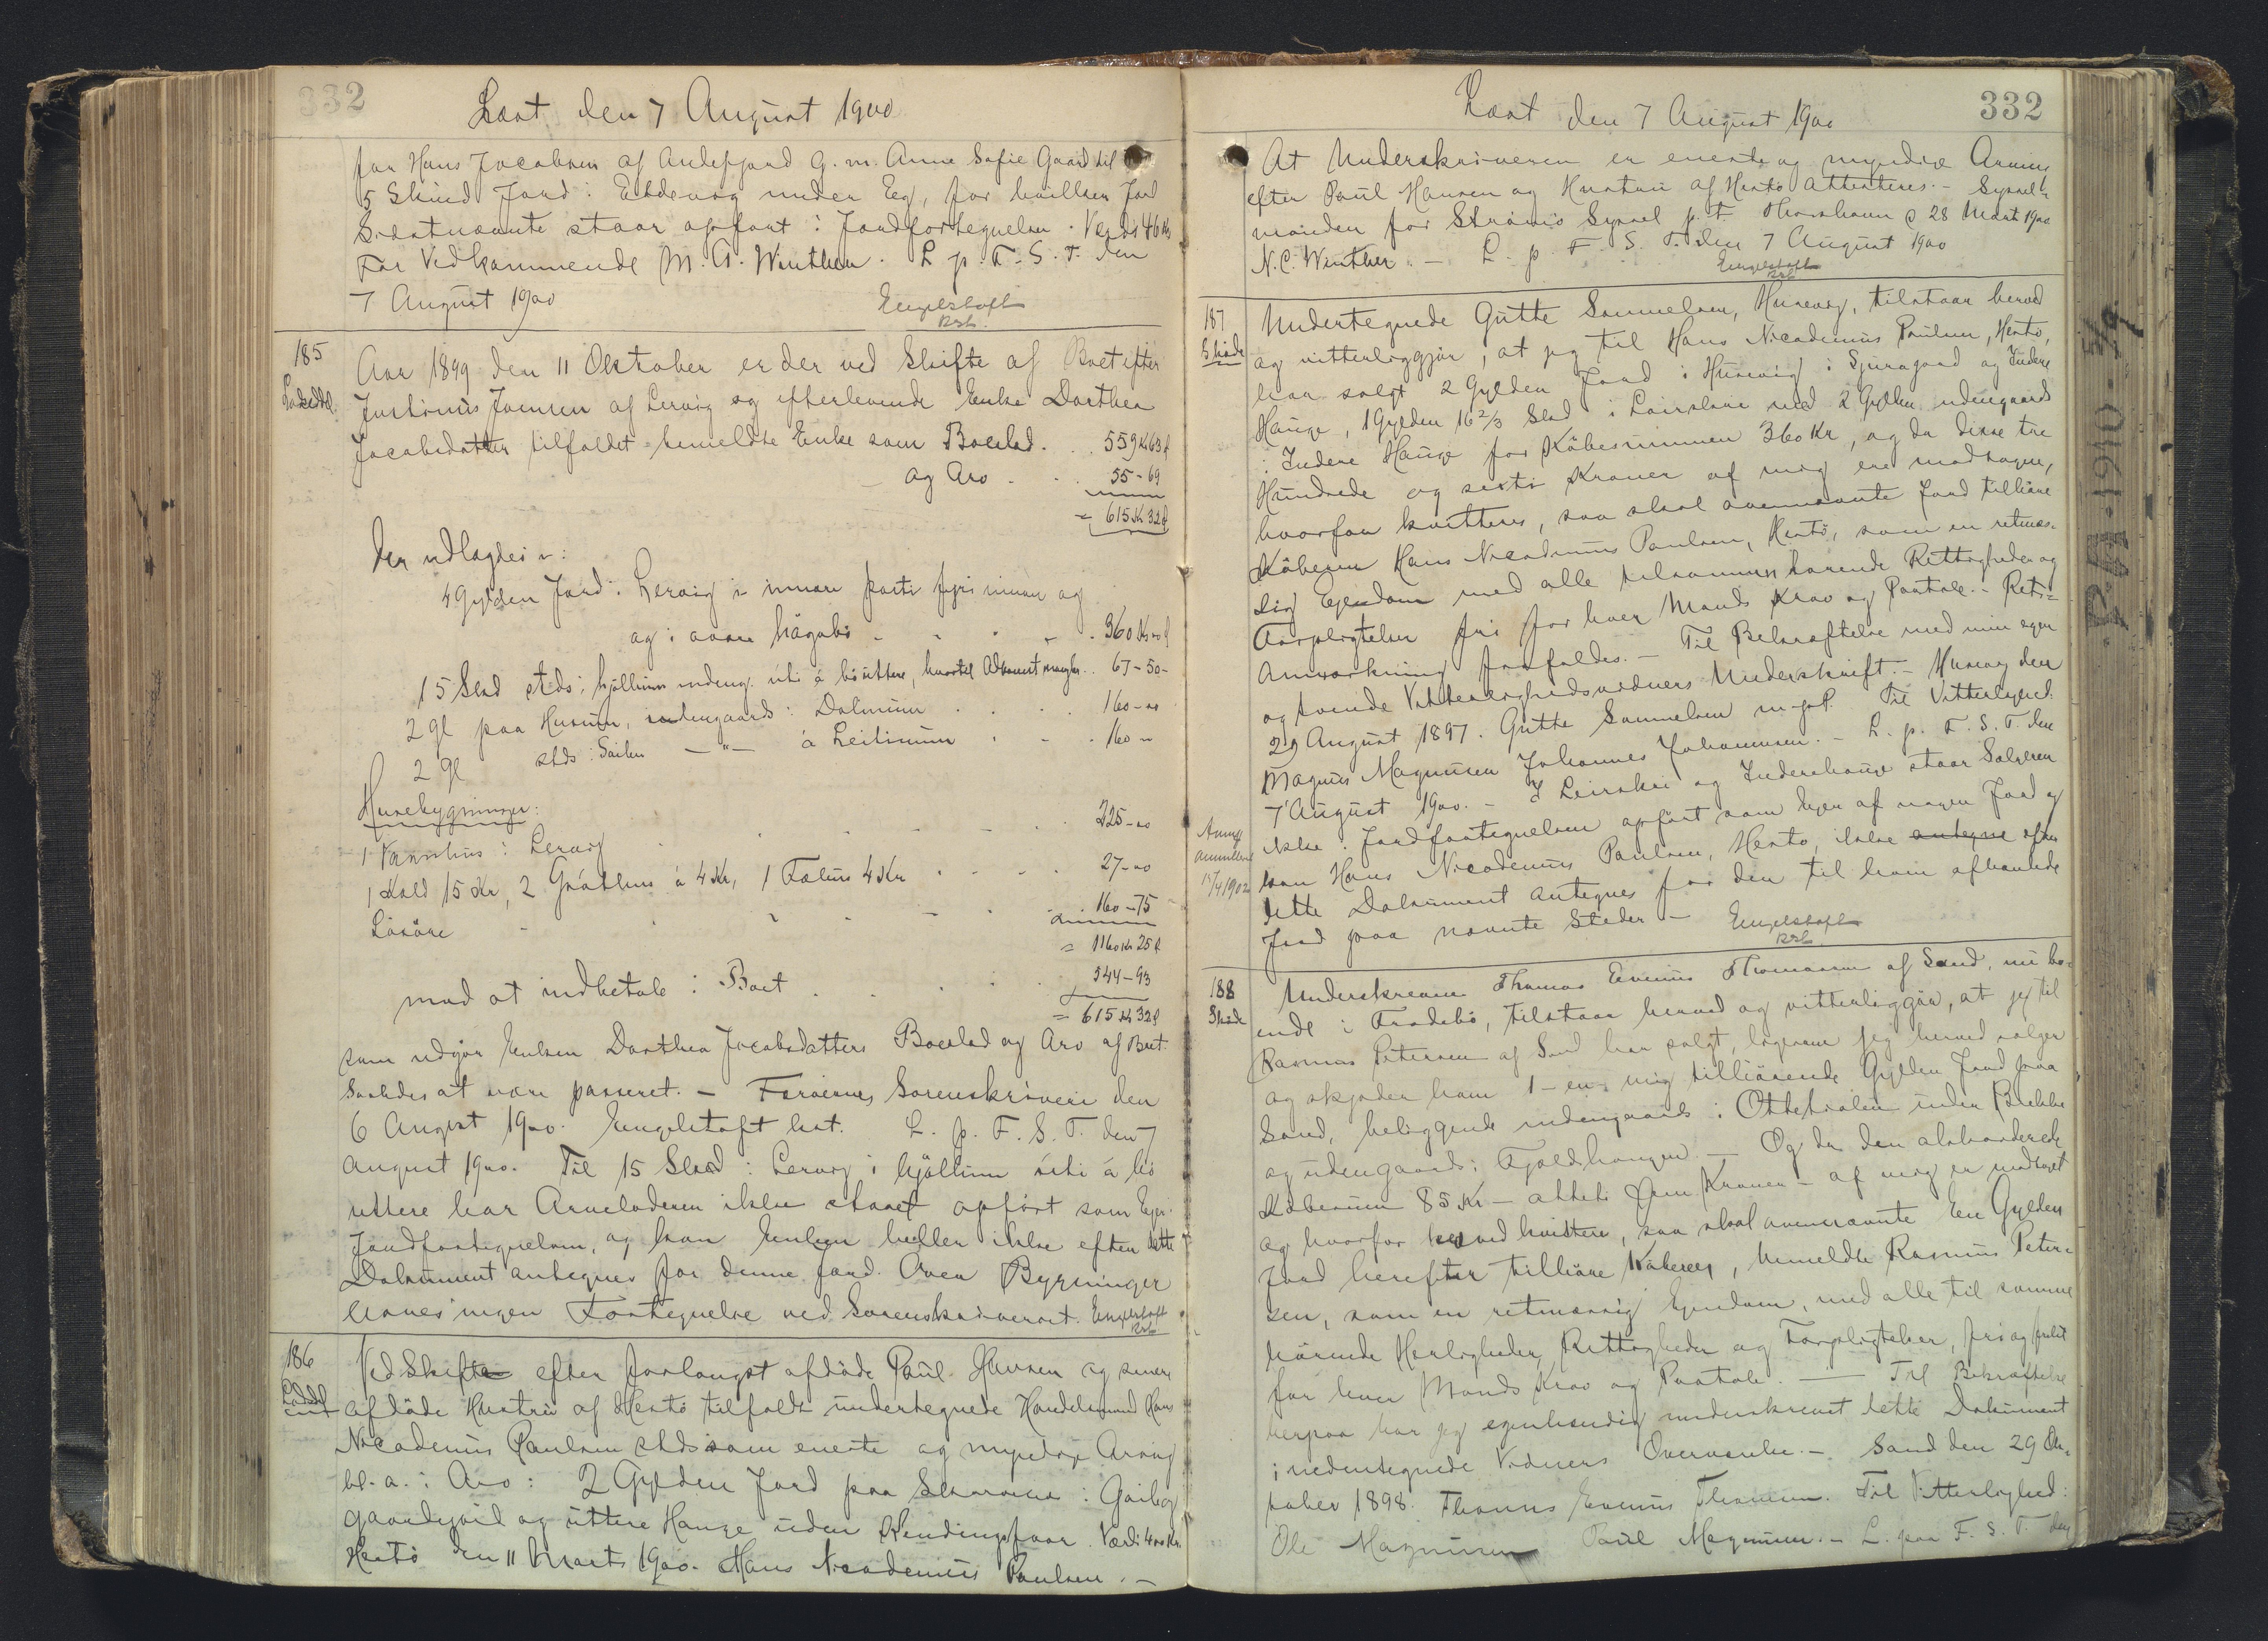 332
Læst den 7 August 1900
for Hans Jacobsen af Andefjord G. m. Anne Sofie Gaard til
5 Skind Jord i Eldevig under Eg, for hvilken Jord
Sidstnævnte staar opført i Jordfortegnelsen. Værdi 46 Kr
For Vedkommende M. A. Winther. L. p. F. S. T. den
7 August 1900
Engelstoft
kst.
185
Aar 1899 den 11 Oktober er der ved Skifte af Boet efter
Justinus Joensen af Lervig og efterlevende Enke Dorthea
Jacobsdatter tilfaldet bemeldte Enke som Boeslod . . 559 Kr 63 f
og Arv . . . 55 - 69
= 615 Kr 32 f
Der udlagdes:
4 Gylden Jord i Lervig i innara parti fyri innan og
og i ovara hágabø - - - - 360 Kr 00 f
15 Skd stds i hjøllinum indeng. úti á bø uttere, hvortil Adkomst mangler . . 67 - 50 -
2 gl paa Husum, indengaards: Dalinum . . . 160 - 00
2 gl stds: Garlen — " — á Leitinum . . . 160 -
Husebygninger:
1 Vaanhus i Lervig . . . 225 - 00
1 Kald 15 Kr, 2 Gróthus á 4 Kr, 1 Fæhus 4 Kr . . . 27 - 00
Løsøre - - - - 160 - 75
= 1160 Kr 25 f
mod at indbetale i Boet . . . . 544 - 93
= 615 Kr 32 f
som udgør Enken Dorthea Jacobsdatters Boeslod og Arv af Boet.
Saaledes at være passeret. - Færøernes Sorenskriveri den
6 August 1900. Engelstoft kst. L. p. F. S. T. den 7
August 1900. Til 15 Skd i Lervig i hjøllinum úti á bø
uttere har Arveladeren ikke staaet opført som Ejer i
Jordfortegnelsen, og kan Enken heller ikke efter dette
Dokument antegnes for denne Jord. Over Bygninger
haves ingen Fortegnelse ved Sorenskriveriet. Engelstoft
kst.
186
Ved Skifte efter forlængst afdøde Paul Hansen og senere
afdøde Hustru af Hestø tilfaldt undertegnede Handelsmand Hans
Nicodemus Paulsen stds som eneste og myndig Arving
bl. a. i Arv: 2 Gylden Jord paa Skarvanes i Gaileg
gaardsjord og uttere Hauge uden Kendingsfaar. Værdi 400 Kr.
Hestø den 11 Marts 1900. Hans Nicodemus Paulsen. -
Læst den 7 August 1900
332
At Underskriveren er eneste og myndig Arving
efter Paul Hansen og Hustru af Hestø attesteres. - Syssel-
manden for Strømø Syssel p. t. Thorshavn d 28 Marts 1900
N. C. Winther. - L. p. F. S. T. den 7 August 1900
Engelstoft
kst.
187
Skøde
Undertegnede Gutte Samuelsen, Husevig, tilstaar herved
og vitterliggjør, at jeg til Hans Nicodemus Paulsen, Hestø,
har solgt 2 Gylden Jord i Husevig i Gjuragard og Indere
Hauge, 1 Gylden 16 2/3 Skd i Leirskeri med 2 Gylden udengaards
i Indere Hauge for Købesummen 360 Kr, og da disse tre
Hundrede og sexti Kroner af mig ere modtagne,
hvorfor kvitteres, saa skal ovennævnte Jord tilhøre
Køberen Hans Nicodemus Paulsen, Hestø, som en retmæs-
sig Ejendom med alle tilsammen hørende Rettigheder og
Forpligtelser fri for hver Mands Krav og Paatale. - Rets-
Anmærkning frafaldes. - Til Bekræftelse med min egen
og tvende Vitterlighedsvidners Underskrift. - Husevig den
29 August 1897. Gutte Samuelsen m. f. P. Til Vitterlighed:
Magnus Magnusen Johannes Johannesen. - L. p. F. S. T. den
7 August 1900. - I Leirskeri og Inderehauge staar Sælgeren
ikke i Jordfortegnelsen opført som Ejer af nogen Jord og
kan Hans Nicodemus Paulsen, Hestø, ikke antegne efter
dette Dokument antegnes for den til ham afhændede
Jord paa nævnte Steder - Engelstoft
kst.
15/4 1902
188
Skøde
Underskrevne Thomas Evenius Thomassen af Sand, nu bo-
ende i Frodebø, tilstaar herved og vitterliggjør, at jeg til
Rasmus Petersen af Sand har solgt, ligesom jeg herved sælger
og skjøder ham 1 - en mig tilhørende Gylden Jord paa
Sand, beliggende indengaards i Ottehialen under Brekke
og udengaards i Tjoldhaugen. - Og da den akkorderede
Købesum 85 Kr - otteti fem Kroner - af mig er modtaget
og hvorfor herved kvittere, saa skal ovennævnte Een Gylden
Jord herefter tilhøre Køberen, bemeldte Rasmus Peter-
sen, som en retmæssig Ejendom, med alle til samme
hørende Herligheder, Rettigheder og Forpligtelser, fri og frelst
for hver Mands Krav og Paatale. — Til Bekræftelse
herpaa har jeg egenhændig underskrevet dette Dokument
i nedentegnede Vidners Overværelse. - Sand den 29 Ok-
tober 1898. Thomas Evenius Thomassen. Til Vitterlighed:
Ole Magnussen Poul Magnussen. - L. paa F. S. T. den